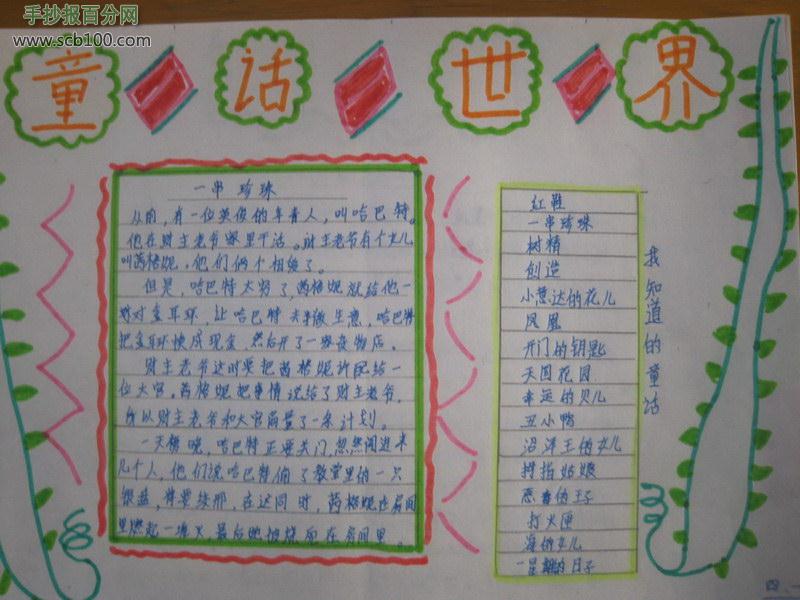 手抄报百分网
www.scb100.com
童话世界
一串珍珠
从前，有一位英俊的年青人，叫哈巴特。
他在财主老爷家里干活。财主老爷有个女儿
叫芮格妮，他们俩个相绕了。
但是，哈巴特太穷了，芮格妮就给他一
对金耳环，让哈巴特去做生意，哈巴特
把金耳环换成现金，然后开了一家食物店。
财主老爷这时要把芮格妮许配给一
位大官。芮格妮把事情说给了财主老爷，
所以财主老爷和大官商量了一条计划。
一天傍晚，哈巴特正要关门，忽然闯进来
几个人，他们说哈巴特偷了教堂里的一只
银盘，在这同时，芮格妮在房间
里燃起一堆火，最后她被烧死在房间里。
我知道的童话
红鞋
一串珍珠
树精
创造
小意达的花儿
凤凰
开门的钥匙
天国花园
幸运的贝儿
丑小鸭
沼泽王的女儿
拇指姑娘
恶毒的王子
打火匣
海的女儿
一星期的日子
四、一